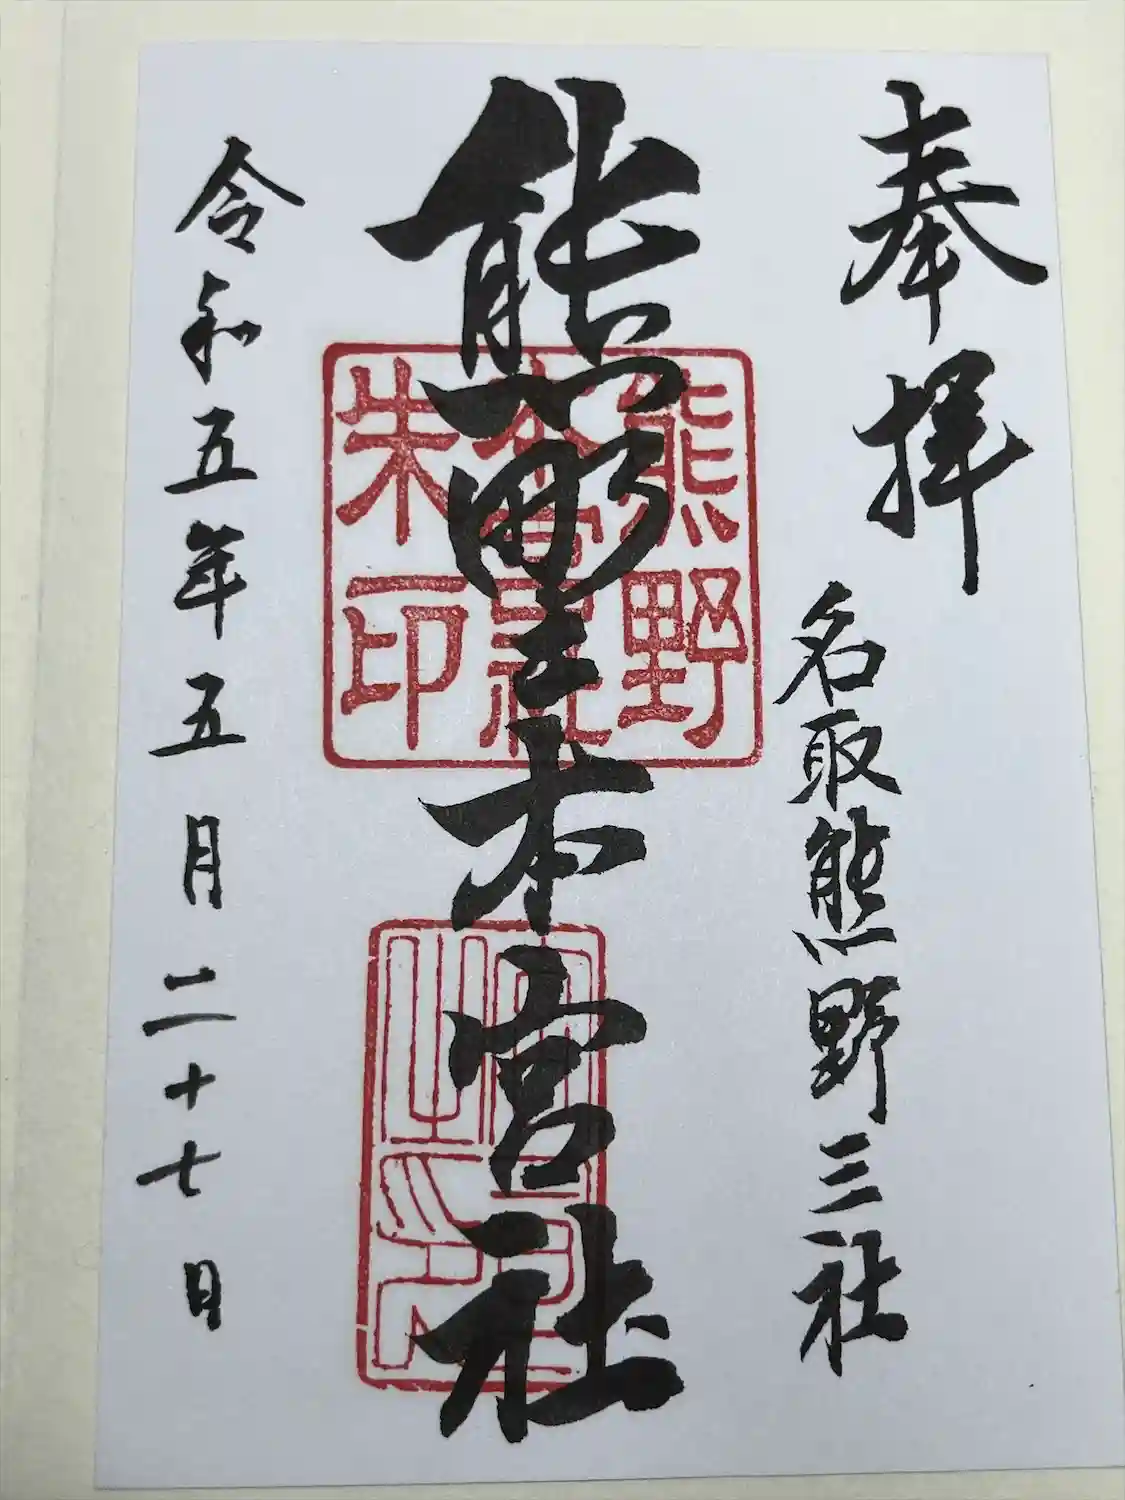 奉拝
名取熊野三社
熊野本宮社
熊野
本宮社
朱印
令和五年五月二十七日